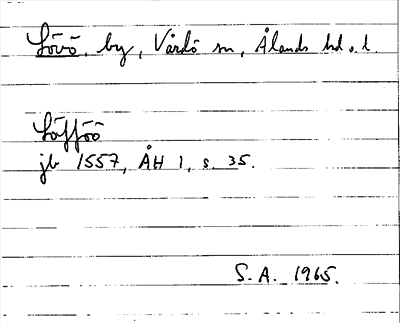 Lövö, by, Vårdö sn, Ålands hd s. l.
Löfföö
jb 1557, ÅH 1, s. 35.
S. A. 1965.